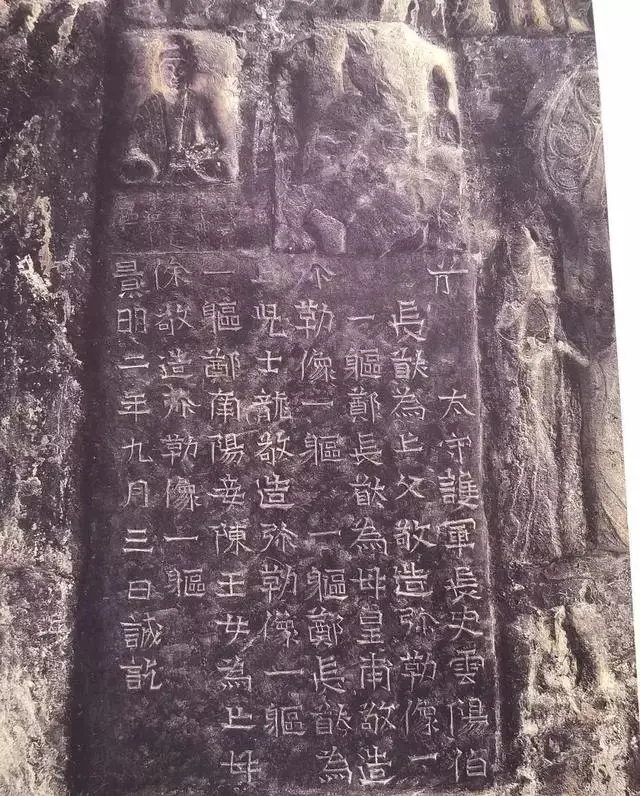 太守護軍長史雲陽伯
長猷為亡父敬造弥勒像一
一軀鄭長猷為母皇甫敬造
勒像一軀一軀鄭長猷為
児士龍敬造弥勒像一軀
一軀鄭南陽妾陳王女為亡母
徐敬造弥勒像一軀
景明二年九月三日誡訖